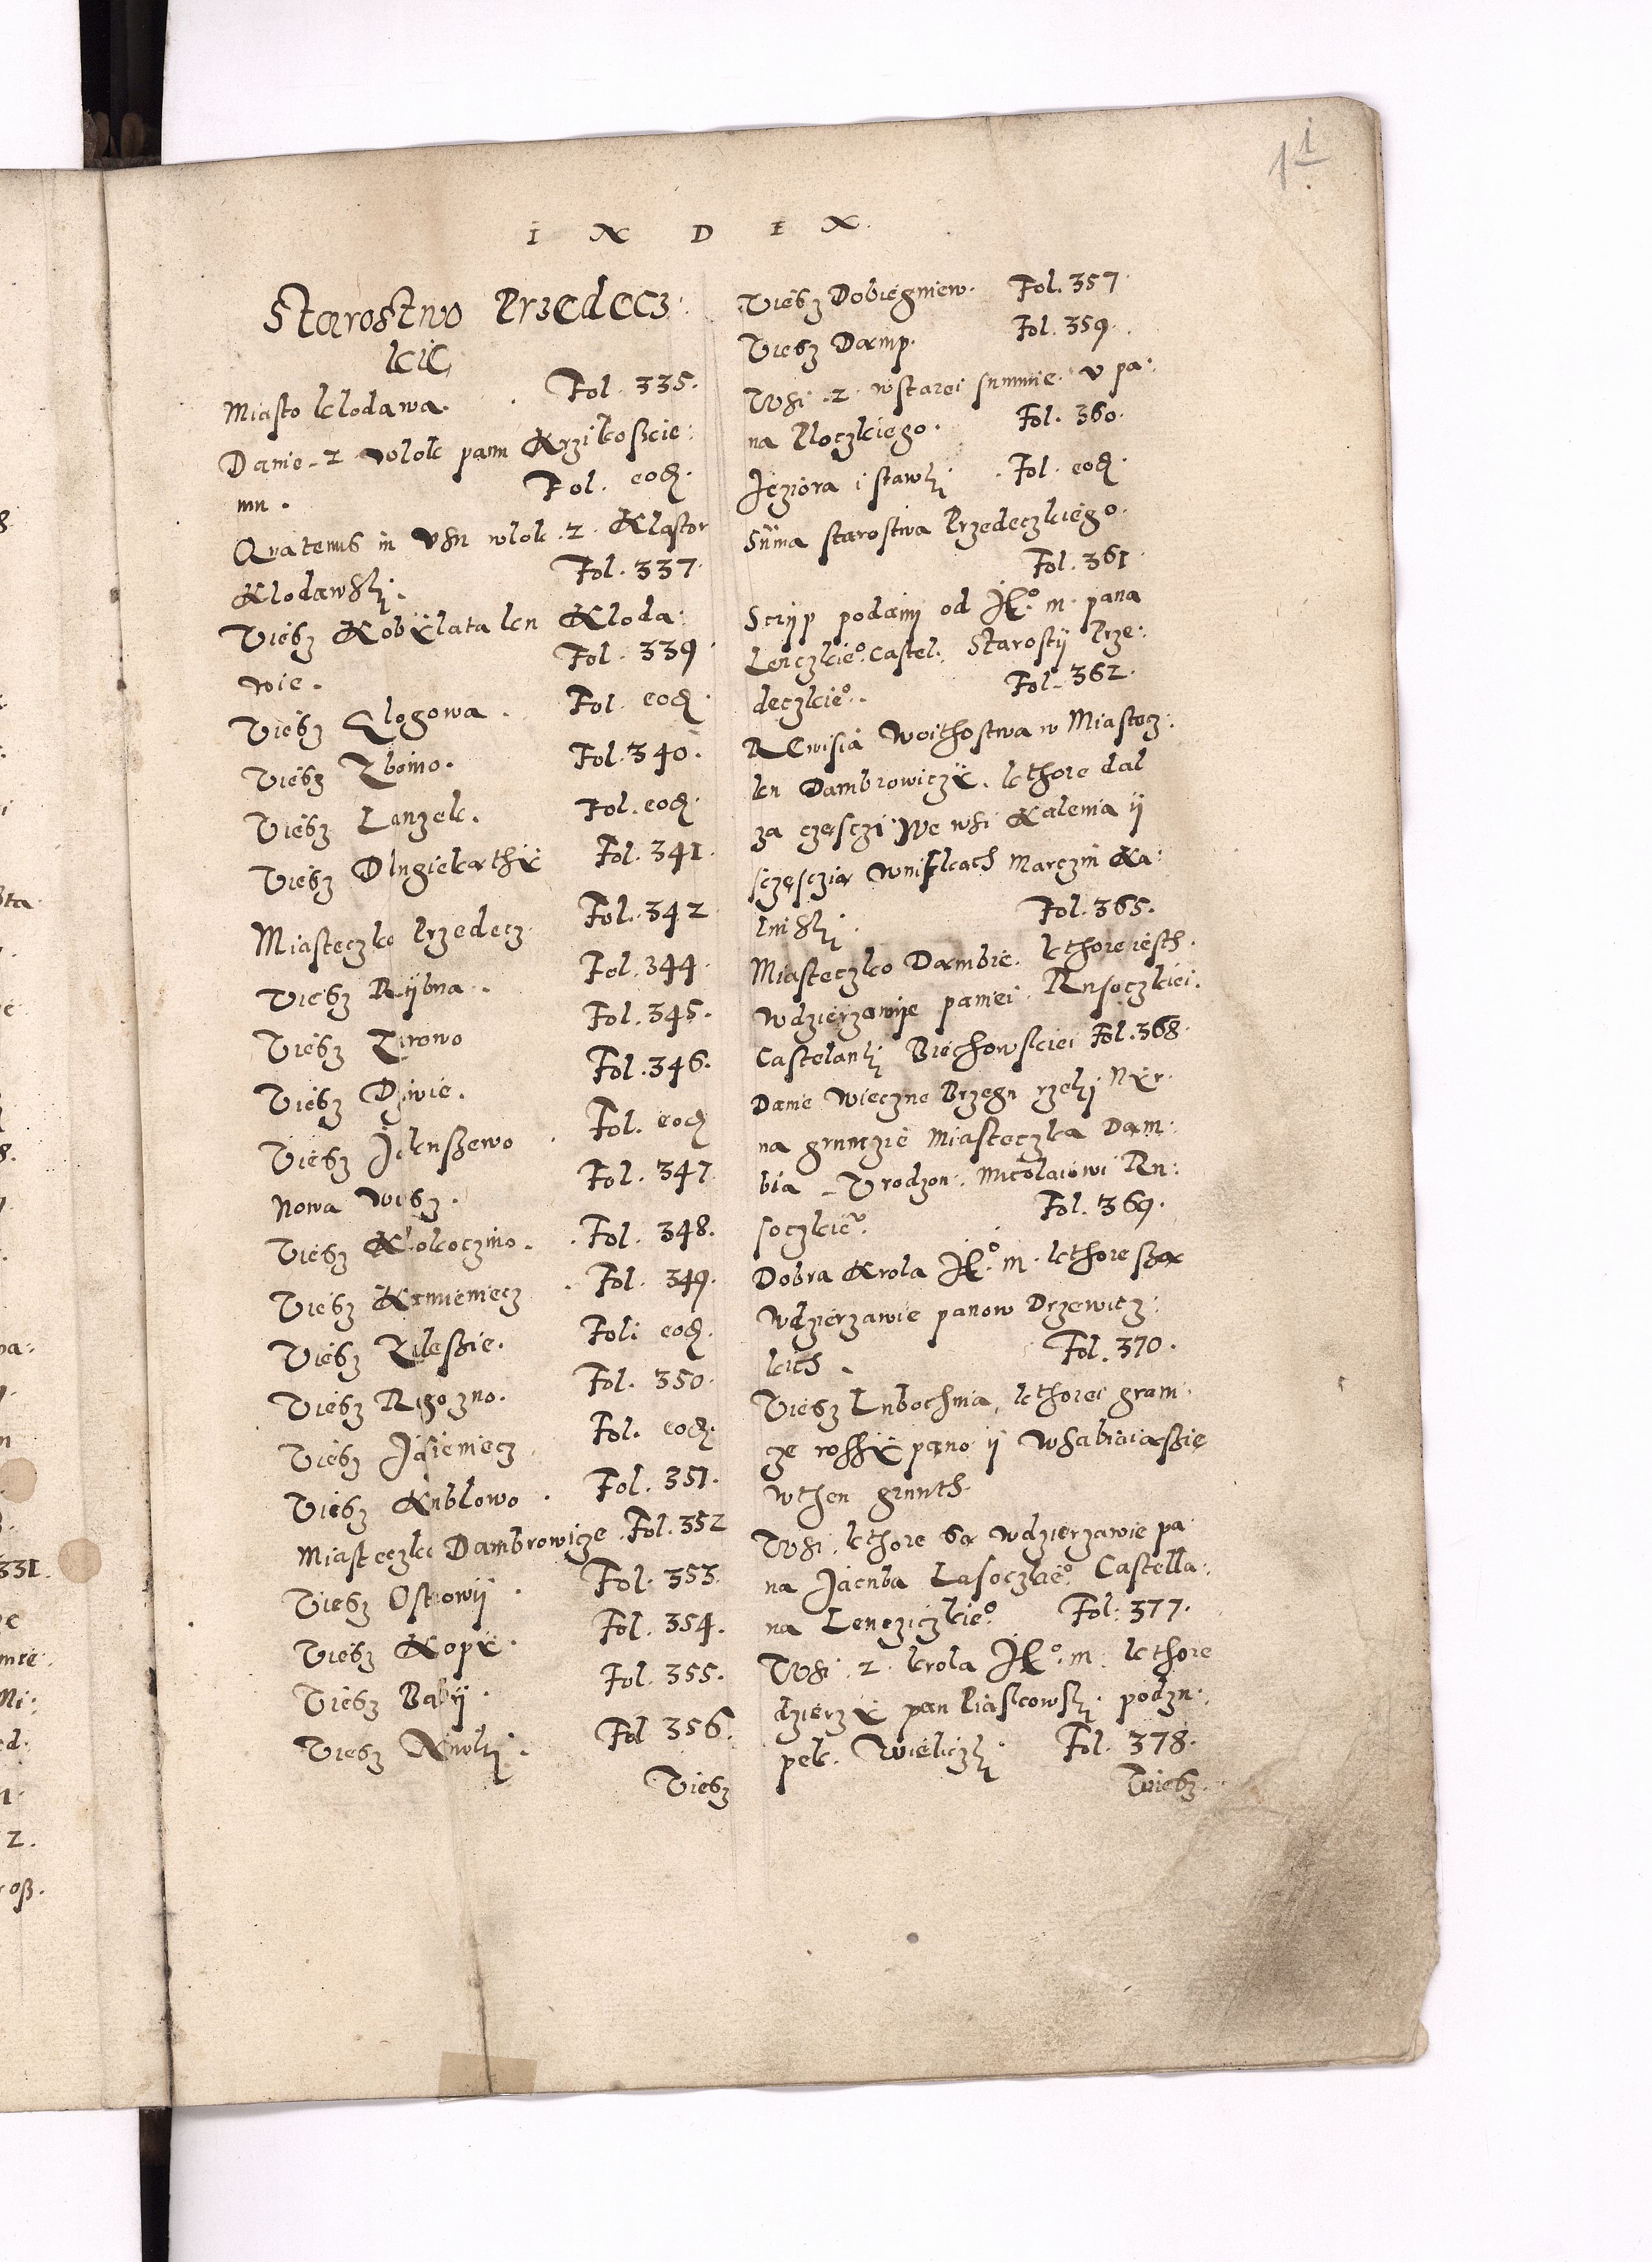 1 1
I N D E X
Starostwo Przedecz:
kie
Miasto klodawa. Fol. 335.
Danie 2 wlok panu Krzikoskie:
mu. Fol. eod.
Quatenus in vsu wlok 2 Klastor
Klodawski. Fol. 337.
Viesz Kobÿlata ku Kloda:
wie. Fol. 339
Viesz Glogowa. Fol. eod.
Viesz Zbonio. Fol. 340.
Viesz Lanzek. Fol. eod.
Viesz Dlugiekathÿ Fol. 341.
Miasteczko Przedecz Fol. 342
Viesz Rÿbna. Fol. 344.
Viesz Zirowo Fol. 345.
Viesz Dziwie. Fol. 346.
Viesz Jakuszewo Fol. eod
Nowa wiesz. Fol. 347
Viesz Klokoczino. Fol. 348.
Viesz Kamieniecz Fol. 349.
Viesz Zaleszie. Fol. eod.
Viesz Rgozno. Fol. 350.
Viesz Jasieniecz Fol. eod.
Viesz Kublowo. Fol. 351.
Miasteczko Dambrowize Fol. 352
Viesz Ostrowÿ Fol. 353.
Viesz Kopÿ. Fol. 354.
Viesz Babÿ. Fol. 355.
Viesz Fol 356.
Viesz
Viesz Dobiegniew. Fol. 357
Viesz Damp. Fol. 359.
Wsi 2 wstarei summie v pa:
na Ploczkiego. Fol. 360.
Jeziora i stawki Fol. eod.
Suma starostwa Przedeczkiego.
Fol. 361
Scrip podani od JKo. m. pana
Lenczkieo. Castel. Starostÿ Prze:
deczkieo. Fol. 362.
Rewisia Woithostwa w Miastecz:
ku Dambrowiczÿ. kthore dal
za czesczi we wsi Kalenia ÿ
sczęsczia Wniskach Marczin Ka:
linski. Fol. 365.
Miasteczko Dambie. kthore iesth.
Wdzierzawije paniei Rusoczkiei.
Castelanki Biechowskiei Fol. 368.
Danie wieczne Brzegu rzeki Nÿr
na grunczie Miasteczka Dam:
bia Vrodzon. Micolaiowi Ru:
soczkieo. Fol. 369.
Dobra Krola JKo. m. kthore szą
Wdzierzawie panow Drzewicz:
kich. Fol. 370.
Viesz Lubochnia, kthorei gran:
ze rosse pano ÿ Wsabiaiaszie
wthen grunth.
Wsi kthore są wdzierzawie pa
na Jacuba Lasoczkieo. Castella:
na Lencziczkieo. Fol. 377.
Wsi 2 krola JKo. m. kthore
dzierzÿ pan Piaskowski podzu:
pek. Wieliczki Fol. 378.
Wiesz.